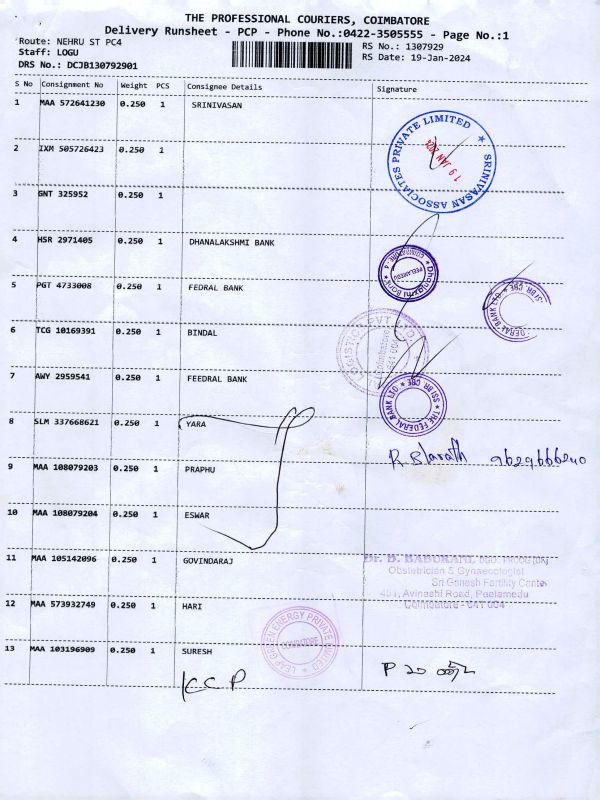 THE PROFESSIONAL COURIERS, COIMBATORE
Delivery Runsheet - PCP - Phone No.:0422-3505555 - Page No.:1
Route: NEHRU ST PC4
RS No.: 1307929
Staff: LOGU
RS Date: 19-Jan-2024
DRS No.: DCJB130792901
S No Consignment No Weight PCS Consignee Details Signature
1 MAA 572641230 0.250 1 SRINIVASAN
SRINIVASAN ASSOCIATES PRIVATE LIMITED
19 JAN
2 IXM 505726423 0.250 1
3 GNT 325952 0.250 1
4 HSR 2971405 0.250 1 DHANALAKSHMI BANK
5 PGT 4733008 0.250 1 FEDRAL BANK
6 TCG 10169391 0.250 1 BINDAL
7 AWY 2959541 0.250 1 FEEDRAL BANK
THE FEDERAL BANK LTD. SSI BR. CBE
8 SLM 337668621 0.250 1 YARA
9 MAA 108079203 0.250 1 PRAPHU
10 MAA 108079204 0.250 1 ESWAR
11 MAA 105142096 0.250 1 GOVINDARAJ
Obstetrician & Gynaecologist
Sri Ganesh Fertility Cente
Avinashi Road, Peelamedu
Coimbatore - 641 004
12 MAA 573932749 0.250 1 HARI
LEAP GREEN ENERGY PRIVATE LIMITED
COIMBATORE
13 MAA 103196909 0.250 1 SURESH
KCP